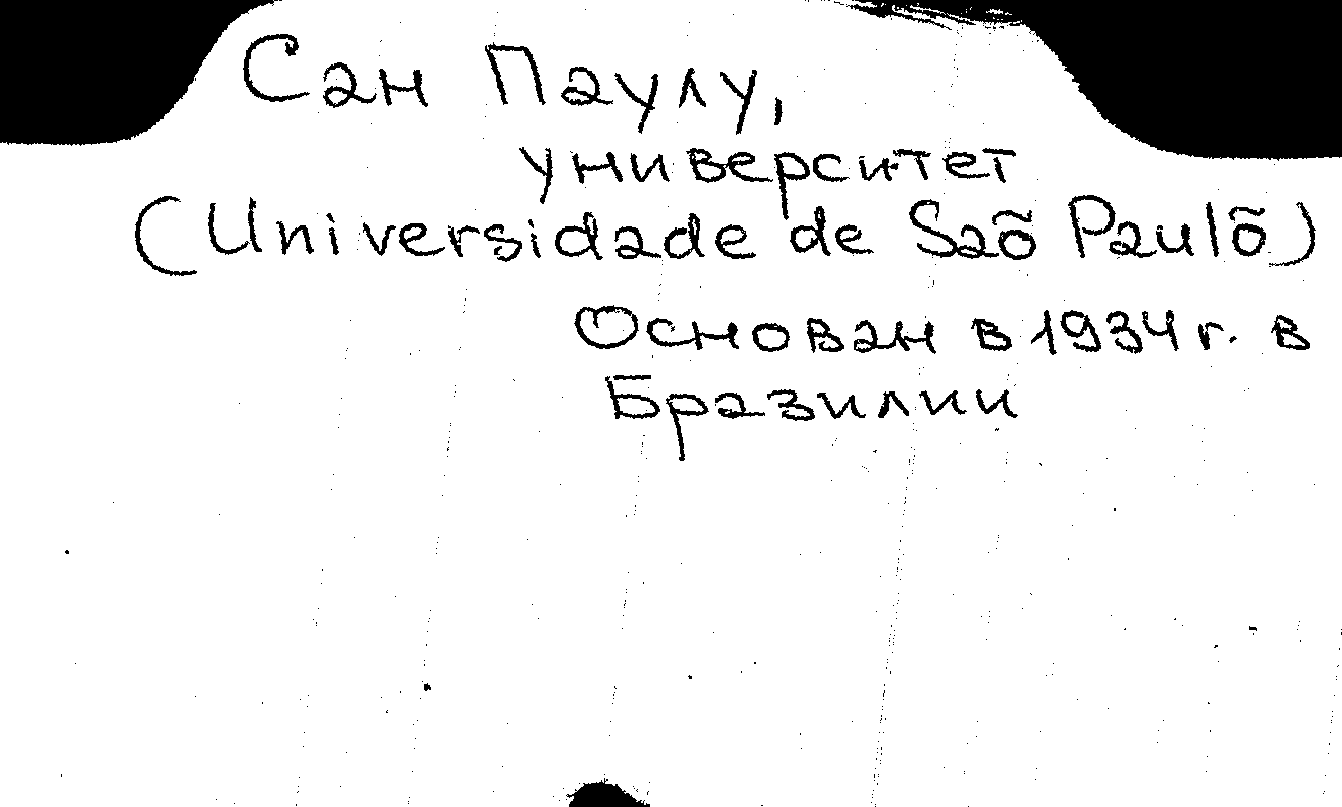 Сан Паулу,
университет
(Universidade de Saõ Paulõ)
Основан в 1934 г. в
Бразилии